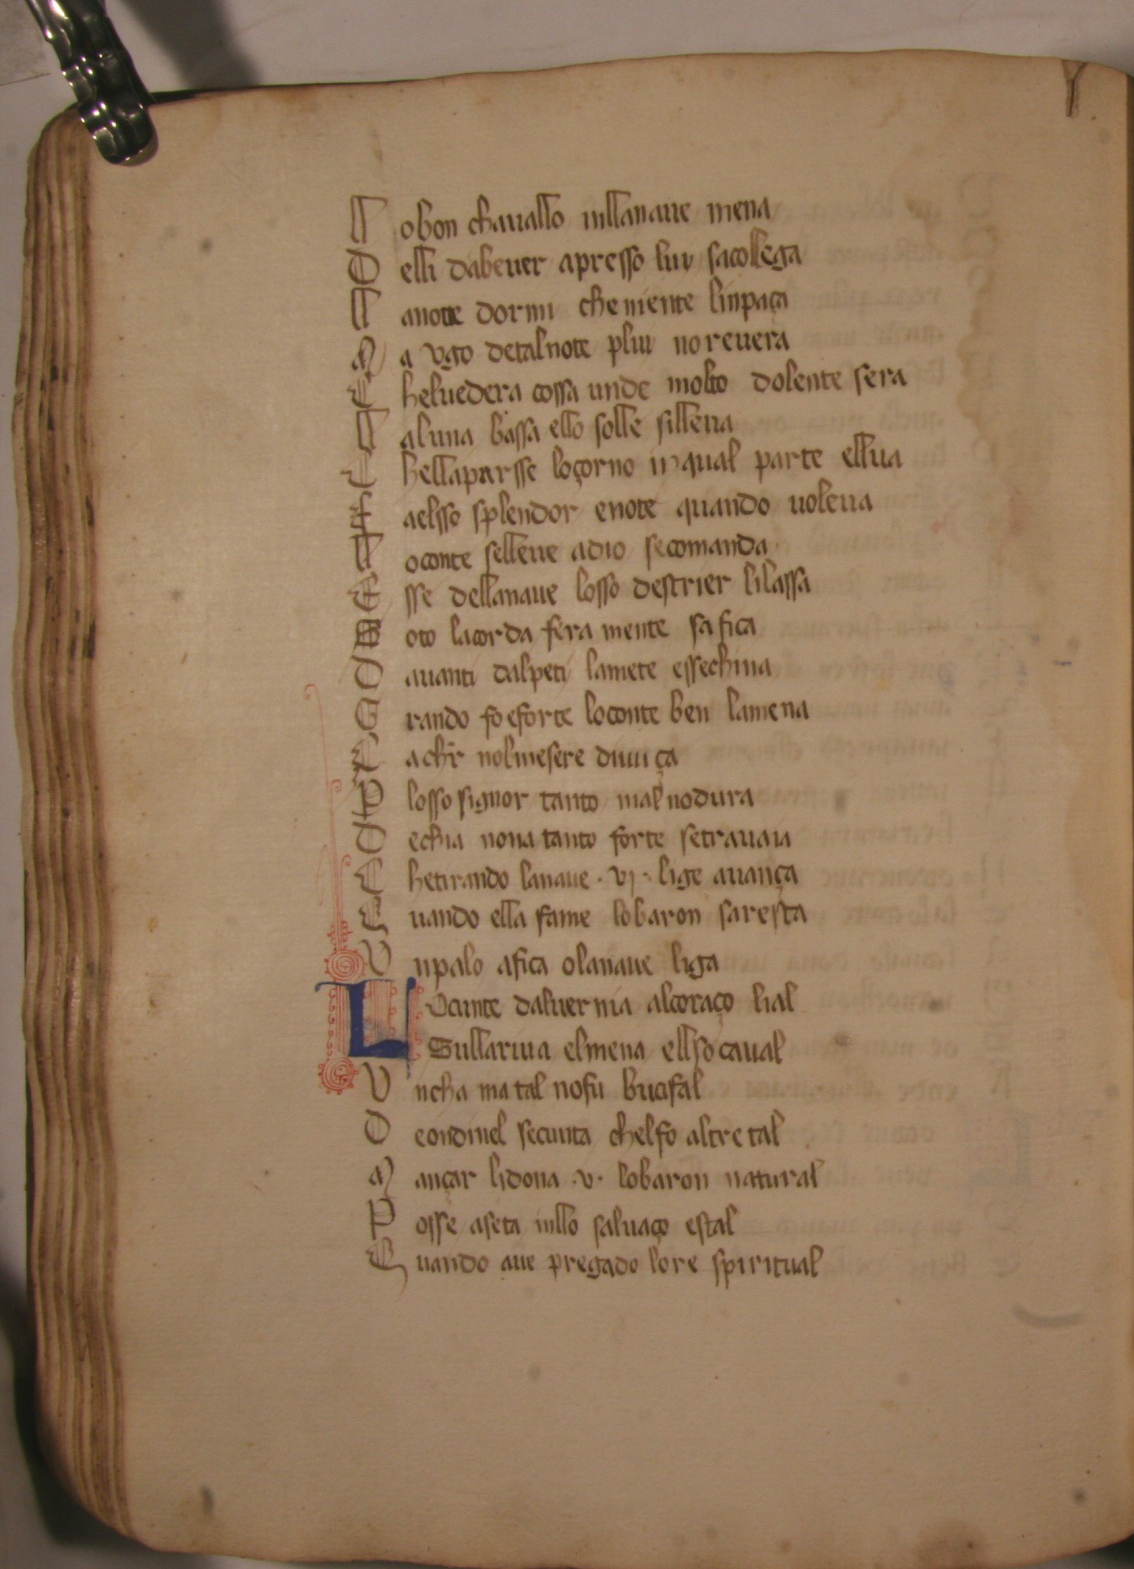 L obon chauallo inllanaue mena
D elli dabeuer apresso luy sacollega
L anote dormi cheniente linpaça
M a vgo detalnote plui noreuera
C heluedera cossa unde molto dolente sera
L aluna bassa ello solle silleua
C hellaparsse loçorno inqual parte ellua
F aelsso splendor enote quando uoleua
L oconte selleue adio secomanda
E sse dellanaue losso destrier lilassa
S oto lacorda fera mente safica
D auanti dalpeti lamete essechina
G rando foeforte loconte ben lamena
C achir nolmesere diuiça
P losso signor tanto mal nodura
D echia nona tanto forte setrauaia
C hetirando lanaue · vj · lige auança
Q uando ella fame lobaron saresta
V npalo afica olanaue liga
L Ocunte daluernia alcoraço lial
Sullariua elmena ellso caual
V ncha ma tal nofu bucifal
D eondinel secunta chelfo altre tal
M ançar lidona · v · lobaron natural
P osse aseta inllo saluaço estal
Q uando aue pregado lore spiritual